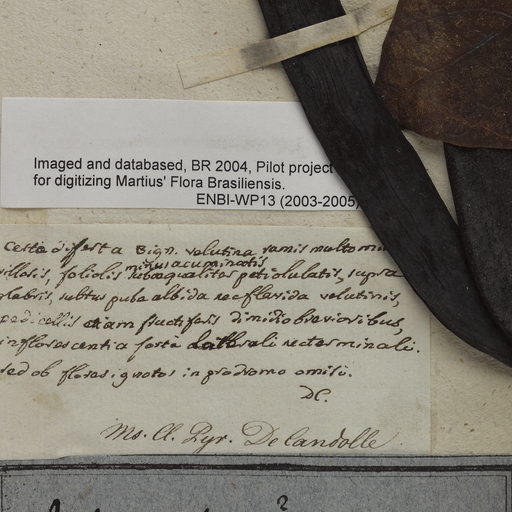 Imaged and databased, BR 2004, Pilot project
for digitizing Martius' Flora Brasiliensis.
ENBI-WP13 (2003-2005)
Certe differt a Bign. velutina ramis multo
minus acuminatis
villosis, foliolis subaequalitos petiolulatis, supra
glabris, subtus pube albida nec flavida velutinis,
pedicellis etiam fructiferis dimidio brevioribus,
inflorescentia forte laterali nec terminali.
sed ob flores ignotos in prodromo omisi.
DC.
Ms. Cl. Pyr. De Candolle